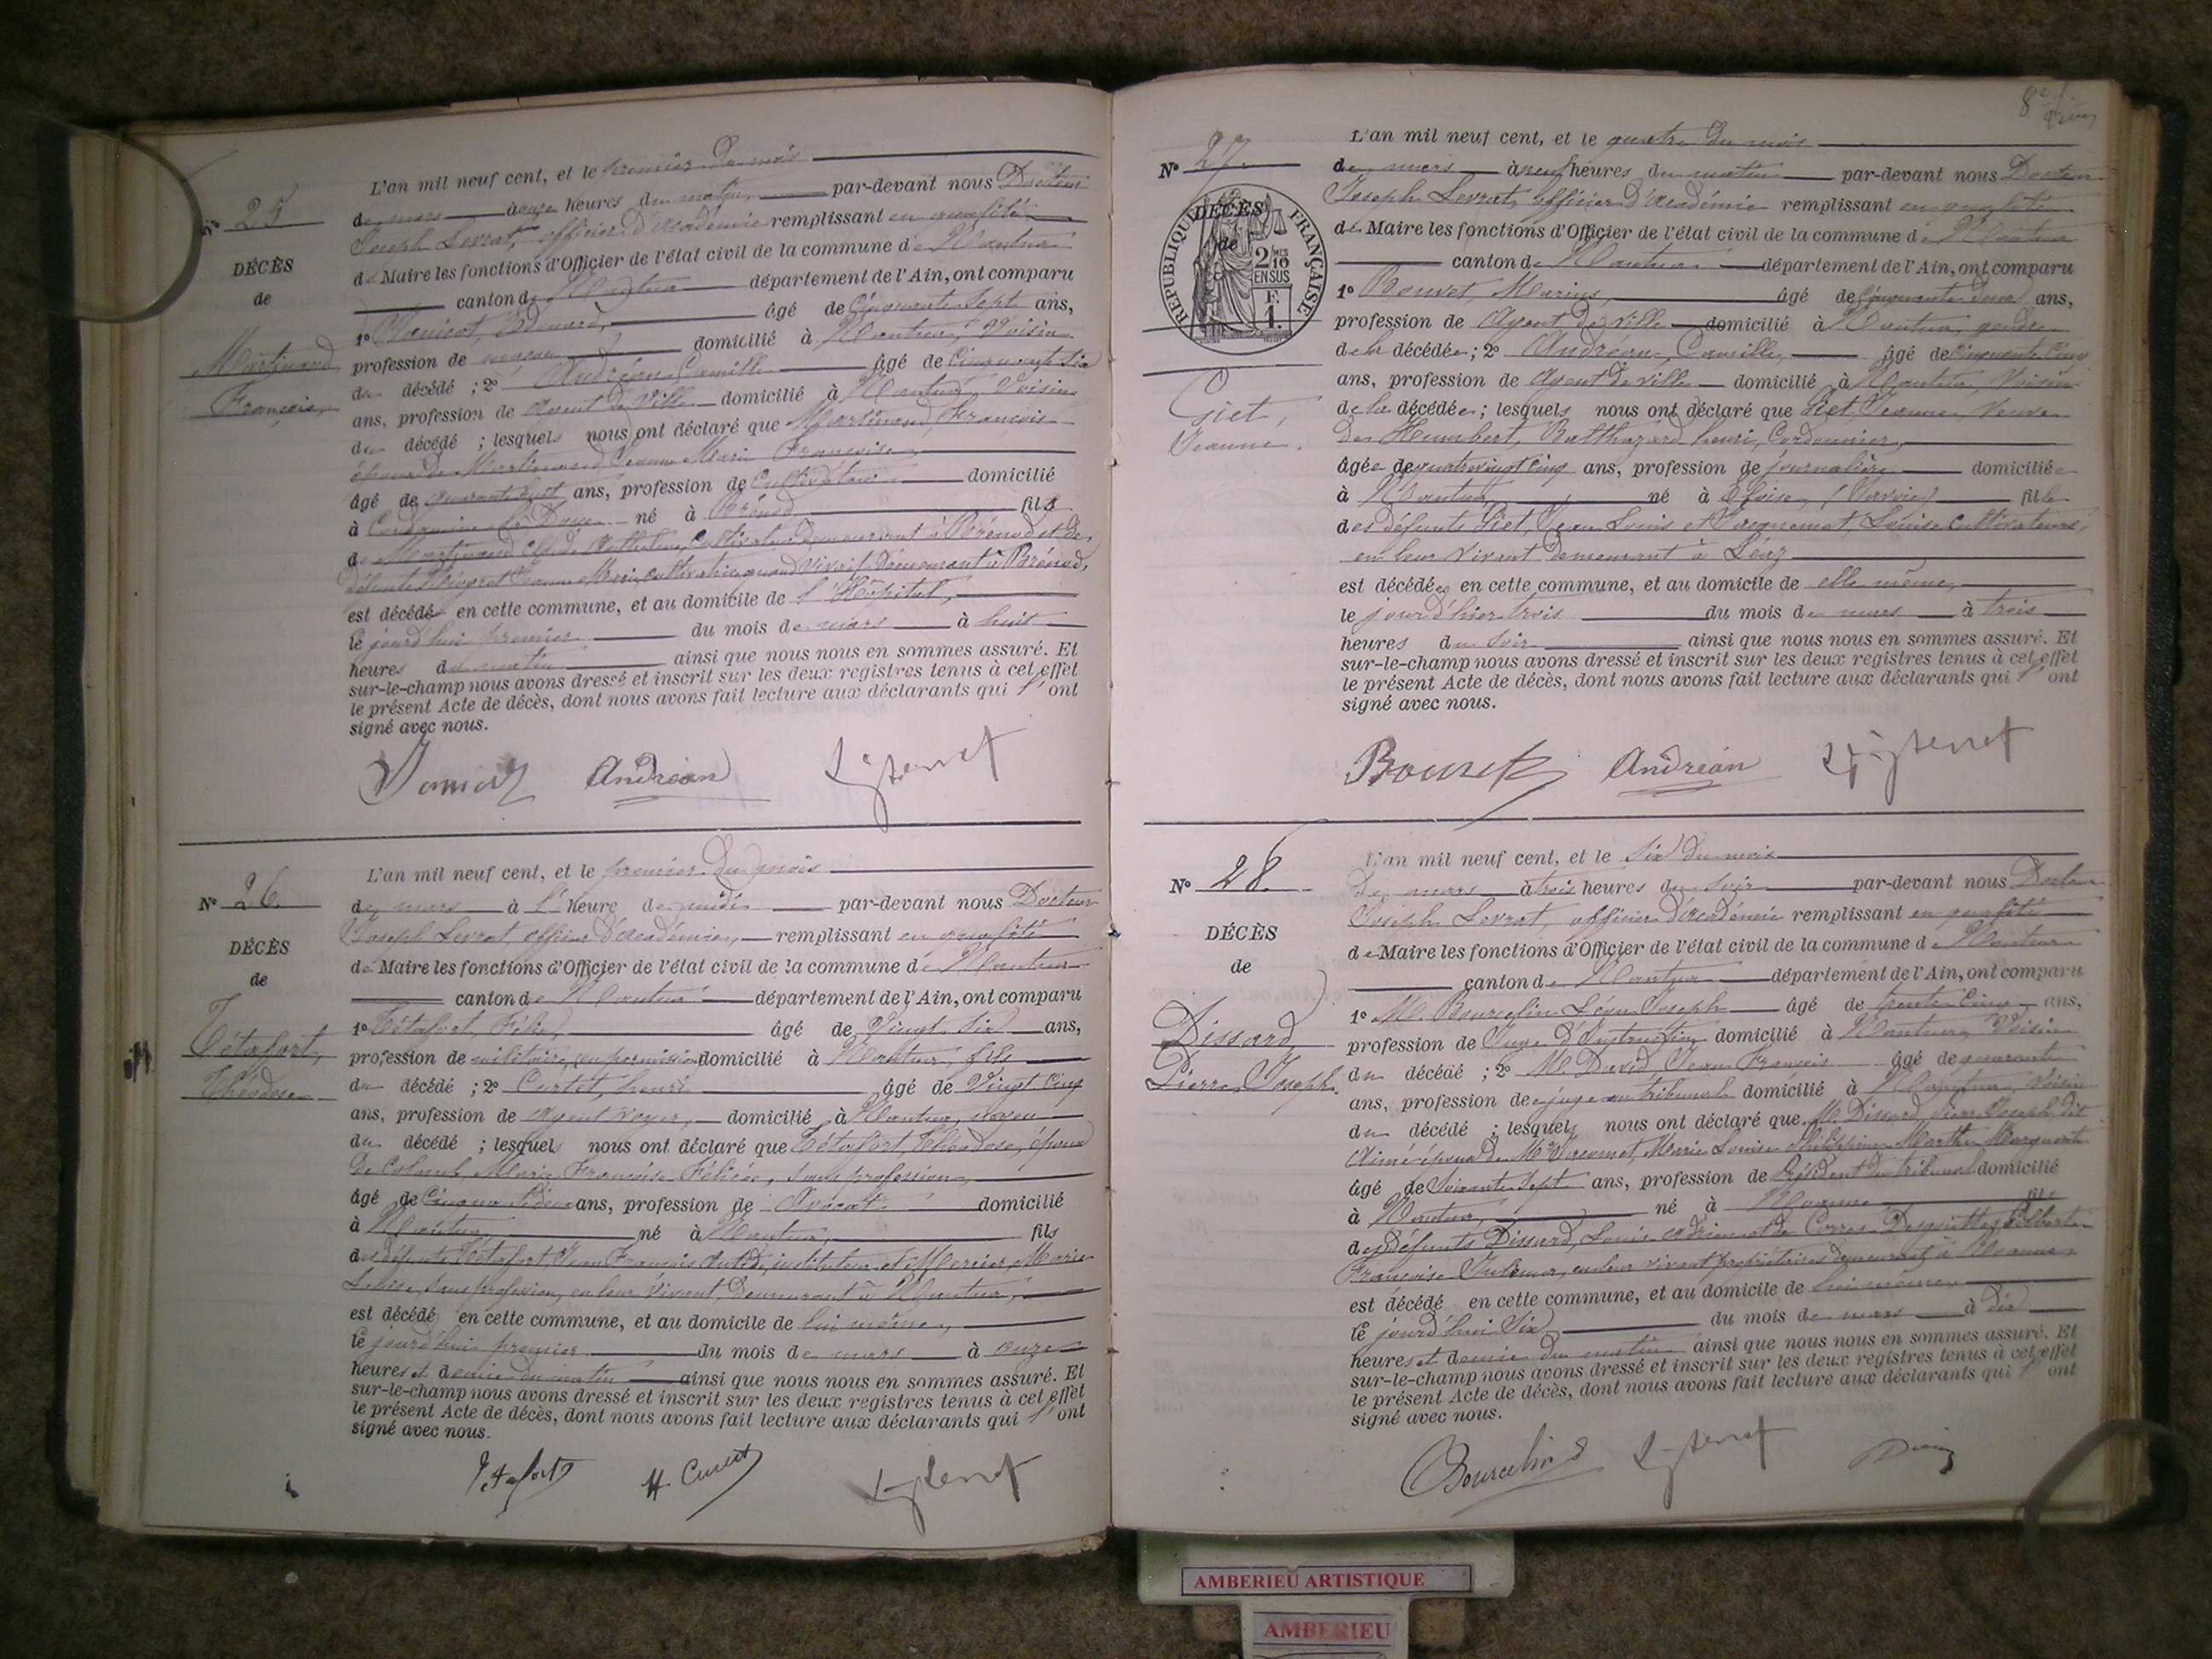 L'an mil neuf cent, et le premier du mois
Nº 25
de mars à onze heures du matin par-devant nous Docteur
Joseph Levrat, officier d'académie remplissant en qualité
DÉCÈS
de Maire les fonctions d'Officier de l'état civil de la commune de Nantua
de
canton de Nantua département de l'Ain, ont comparu
1º Edouard, âgé de Cinquante Sept ans,
Martinand
profession de domicilié à Nantua, Voisin
François
du décédé ; 2º Andréan Camille âgé de Cinquante
ans, profession de Agent de Ville domicilié à Nantua Voisin
du décédé ; lesquels nous ont déclaré que Martinand, François
époux de Martinand Jeanne Marie Françoise
âgé de quarante huit ans, profession de Cultivateur domicilié
à Condamine né à Brénod fils
de Martinand Cultivateur demeurant à Brénod et de
défunte Jeanne Marie, cultivatrice quand vivait demeurant à Brénod,
est décédé en cette commune, et au domicile de l'Hôpital,
le jourd'hui premier du mois de mars à huit
heures du matin ainsi que nous nous en sommes assuré. Et
sur-le-champ nous avons dressé et inscrit sur les deux registres tenus à cet effet
le présent Acte de décès, dont nous avons fait lecture aux déclarants qui l'ont
signé avec nous.
Andréan
L'an mil neuf cent, et le premier du mois
Nº 26
de mars à 1 heure de midi par-devant nous Docteur
Joseph Levrat, officier d'académie, remplissant en qualité
DÉCÈS
de Maire les fonctions d'Officier de l'état civil de la commune de Nantua
de
canton de Nantua département de l'Ain, ont comparu
1º Tétafort, Félix, âgé de Vingt Six ans,
Tétafort,
profession de militaire, en permission domicilié à Nantua, fils
Théodose
du décédé ; 2º Curtet, henri âgé de Vingt Cinq
ans, profession de Agent Voyer, domicilié à Nantua, neveu
du décédé ; lesquels nous ont déclaré que Tétafort, Théodose, époux
de Marie Françoise Félicie, sans profession,
âgé de Cinquante deux ans, profession de Avocat domicilié
à Nantua né à Nantua, fils
des défunts Tétafort Jean François instituteur et Mercier Marie
Louise, sans profession, en leur vivant Demeurant à Nantua,
est décédé en cette commune, et au domicile de lui même,
le jourd'hui premier du mois de mars à onze
heures et demie du matin ainsi que nous nous en sommes assuré. Et
sur-le-champ nous avons dressé et inscrit sur les deux registres tenus à cet effet
le présent Acte de décès, dont nous avons fait lecture aux déclarants qui l'ont
signé avec nous.
Tétafort H. Curtet
8e
L'an mil neuf cent, et le quatre du mois
Nº 27
de mars à neuf heures du matin par-devant nous Docteur
Joseph Levrat, officier d'académie remplissant en qualité
RÉPUBLIQUE FRANÇAISE
DÉCÈS
de
2/10MES
EN SUS
F.
1.
de Maire les fonctions d'Officier de l'état civil de la commune de Nantua
canton de Nantua département de l'Ain, ont comparu
1º Bouvet, Marius, âgé de ans,
profession de Agent de Ville domicilié à Nantua, gendre
de la décédée ; 2º Andréan, Camille, âgé de Cinquante Cinq
ans, profession de Agent de ville domicilié à Nantua, Voisin
Giet,
Jeanne
de la décédée ; lesquels nous ont déclaré que Giet, Jeanne, Veuve
de Humbert, Balthazard henri, Cordonnier,
âgée de quatre vingt cinq ans, profession de journalière domiciliée
à Nantua, née à Eloise, (Savoie) fille
des défunts Giet, Jean Louis et Jacquemet, Louise cultivateurs,
en leur vivant demeurant à Léaz
est décédée en cette commune, et au domicile de elle même,
le jour d'hier trois du mois de mars à trois
heures du Soir ainsi que nous nous en sommes assuré. Et
sur-le-champ nous avons dressé et inscrit sur les deux registres tenus à cet effet
le présent Acte de décès, dont nous avons fait lecture aux déclarants qui l'ont
signé avec nous.
Bouvet Andréan
L'an mil neuf cent, et le Six du mois
Nº 28
de mars à trois heures du Soir par-devant nous Docteur
Joseph Levrat, officier d'académie remplissant en qualité
DÉCÈS
de Maire les fonctions d'Officier de l'état civil de la commune de Nantua
de
canton de Nantua département de l'Ain, ont comparu
1º M. Bourcelin Léon Joseph âgé de trente Cinq ans,
Dissard,
profession de Juge d'Instruction domicilié à Nantua, Voisin
Pierre, Joseph
du décédé ; 2º M. David, Jean François âgé de quarante
ans, profession de juge au tribunal domicilié à Nantua, Voisin
du décédé ; lesquels nous ont déclaré que M. Dissard, Pierre Joseph dit
Aimé époux de Marie Louise Philippine Marthe Marguerite
âgé de Soixante Sept ans, profession de Président du tribunal domicilié
à Nantua, né à fils
des défunts Dissard, Louis
Françoise en leur vivant propriétaires demeurant à
est décédé en cette commune, et au domicile de lui même,
le jourd'hui Six du mois de mars à dix
heures et demie du matin ainsi que nous nous en sommes assuré. Et
sur-le-champ nous avons dressé et inscrit sur les deux registres tenus à cet effet
le présent Acte de décès, dont nous avons fait lecture aux déclarants qui l'ont
signé avec nous.
Bourcelin
AMBERIEU ARTISTIQUE
AMBERIEU